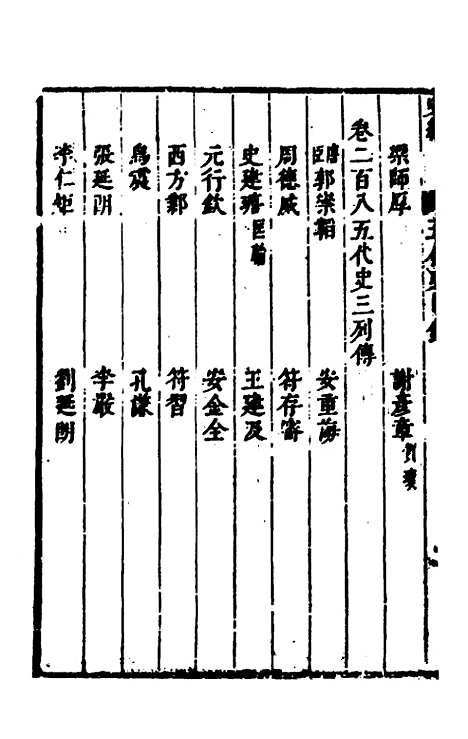 梁師厚　謝彥章
卷二百八五代史三列傳
唐臣郭崇韜　安重誨
周德威　符存審
史建瑭匡翰　王建及
元行欽　安金全
西方鄴　符習
烏震　孔謙
張延朗　李嚴
李仁矩　劉延朗